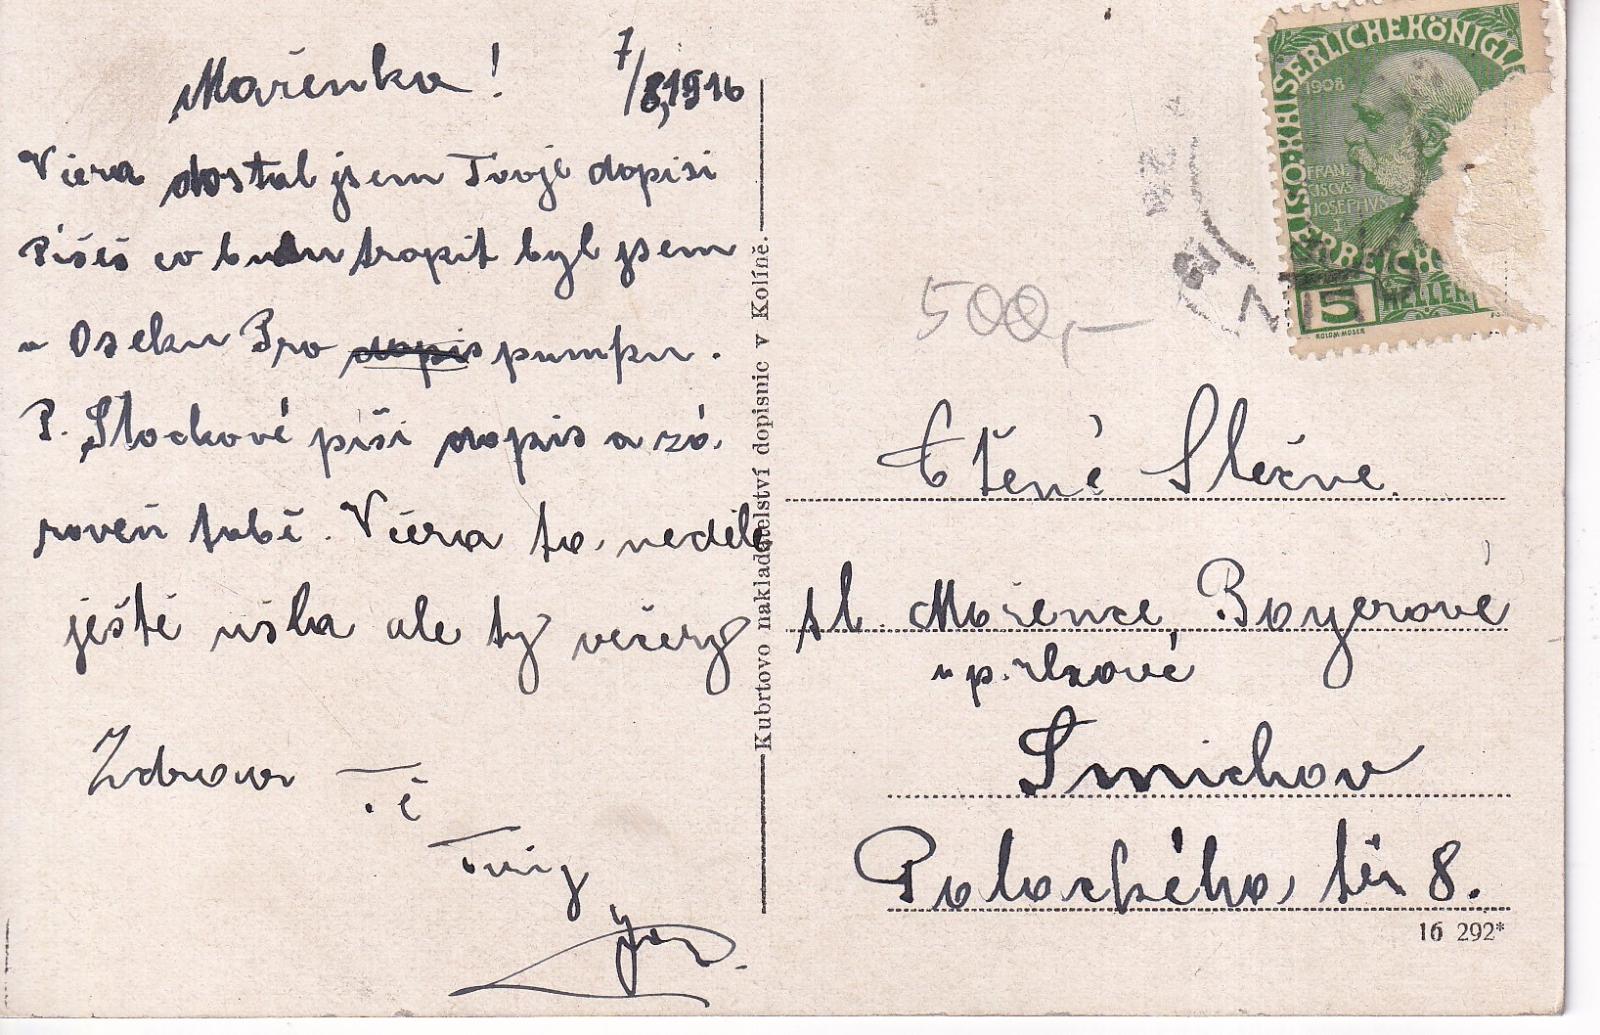 Mařenko! 7/8, 1916
Včera dostal jsem Tvoje dopisi
Píšeš co budu tropit byl jsem
u Oseku Pro dopis pumpu.
P. Stockové píši dopis a zá.
roveň tobě. Včera to, neděle
ještě ušla ale ty večery
Zdravím Tě
Tvůj
Jos.
Kubrtovo nakladatelství dopisnic v Kolíně.
500,-
K.K. OESTERREICHISCHE
KAISERLICHE KÖNIGL
1908
FRAN
CISCVS
JOSEPHVS
I
5 HELLER
KOLOM MOSER
Ctěné Slečně
sl. Mařence, Bayerové
u p.
Smichov
Palackého, tř. 8.
16 292*